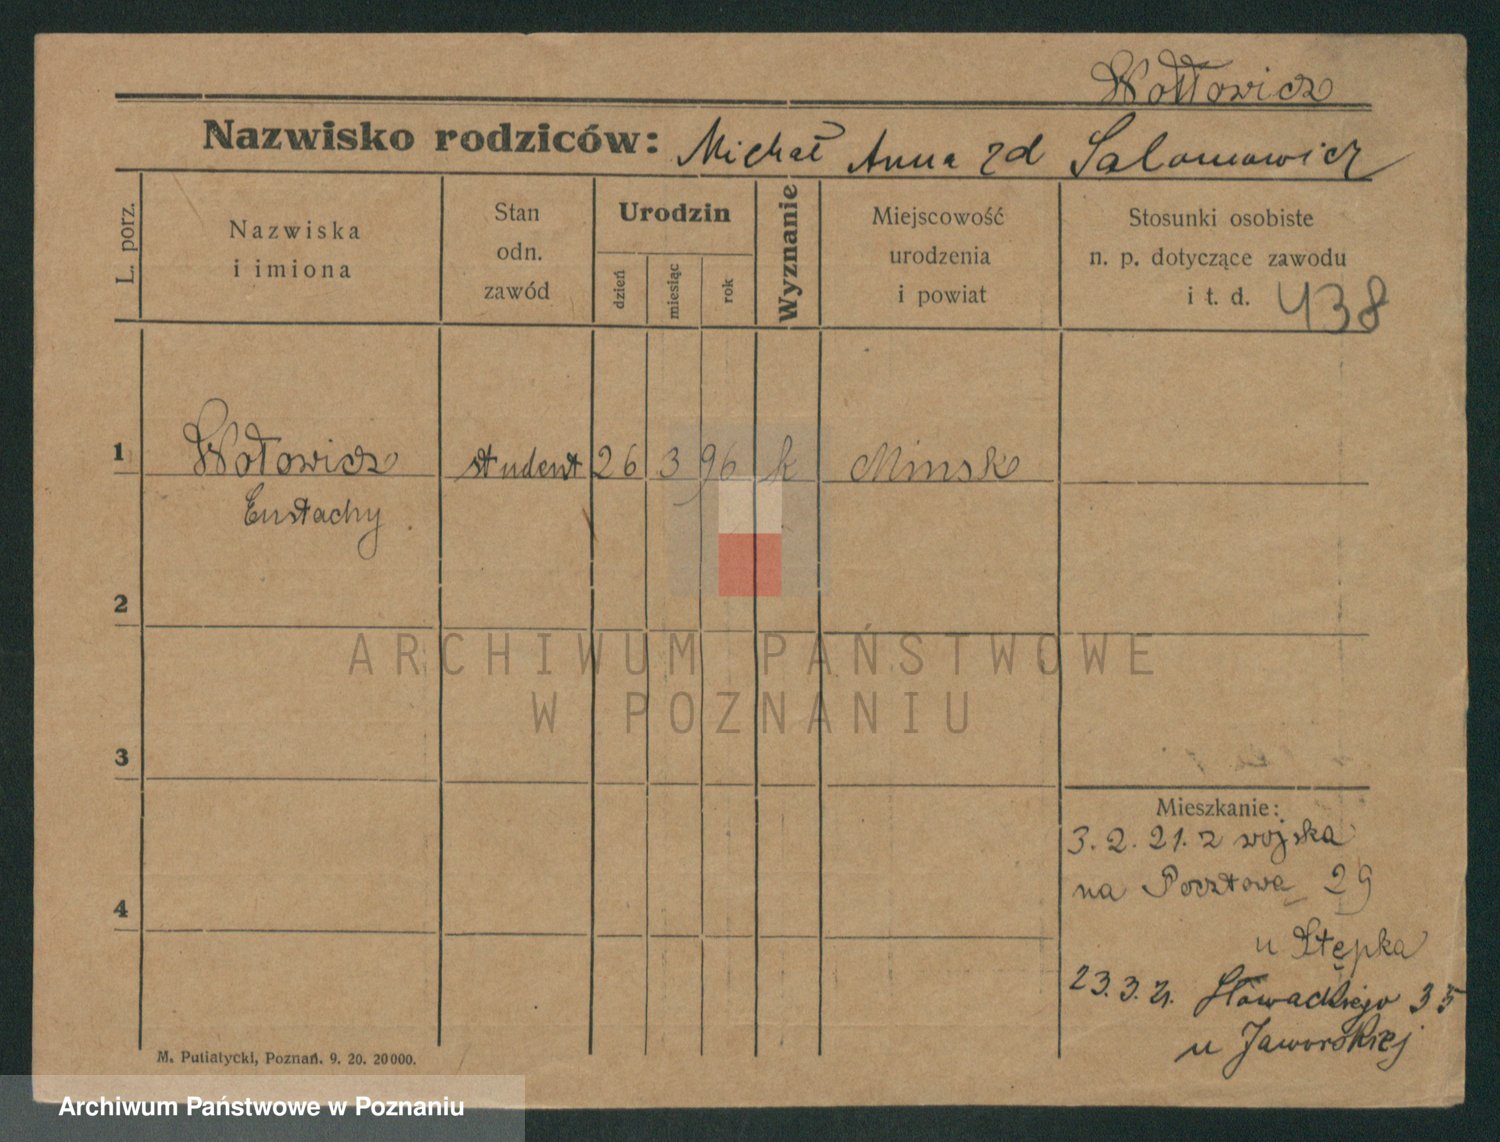 Wołłowicz
Nazwisko rodziców: Michał Anna zd Salomowicz
L. porz.
Nazwiska
i imiona
Stan
odn.
zawód
Urodzin
dzień
miesiąc
rok
Wyznanie
Miejscowość
urodzenia
i powiat
Stosunki osobiste
n. p. dotyczące zawodu
i t. d. 438
1 Wołowicz student 26 3 96 k Minsk
Eustachy
2
3
4
Mieszkanie:
3. 2. 21. z wojska
na Pocztowa 29
u Stępka
23. 3. 21. Słowackiego 35
u Jaworskiej
M. Putiatycki, Poznań. 9. 20. 20000.
ARCHIWUM PAŃSTWOWE
W POZNANIU
Archiwum Państwowe w Poznaniu